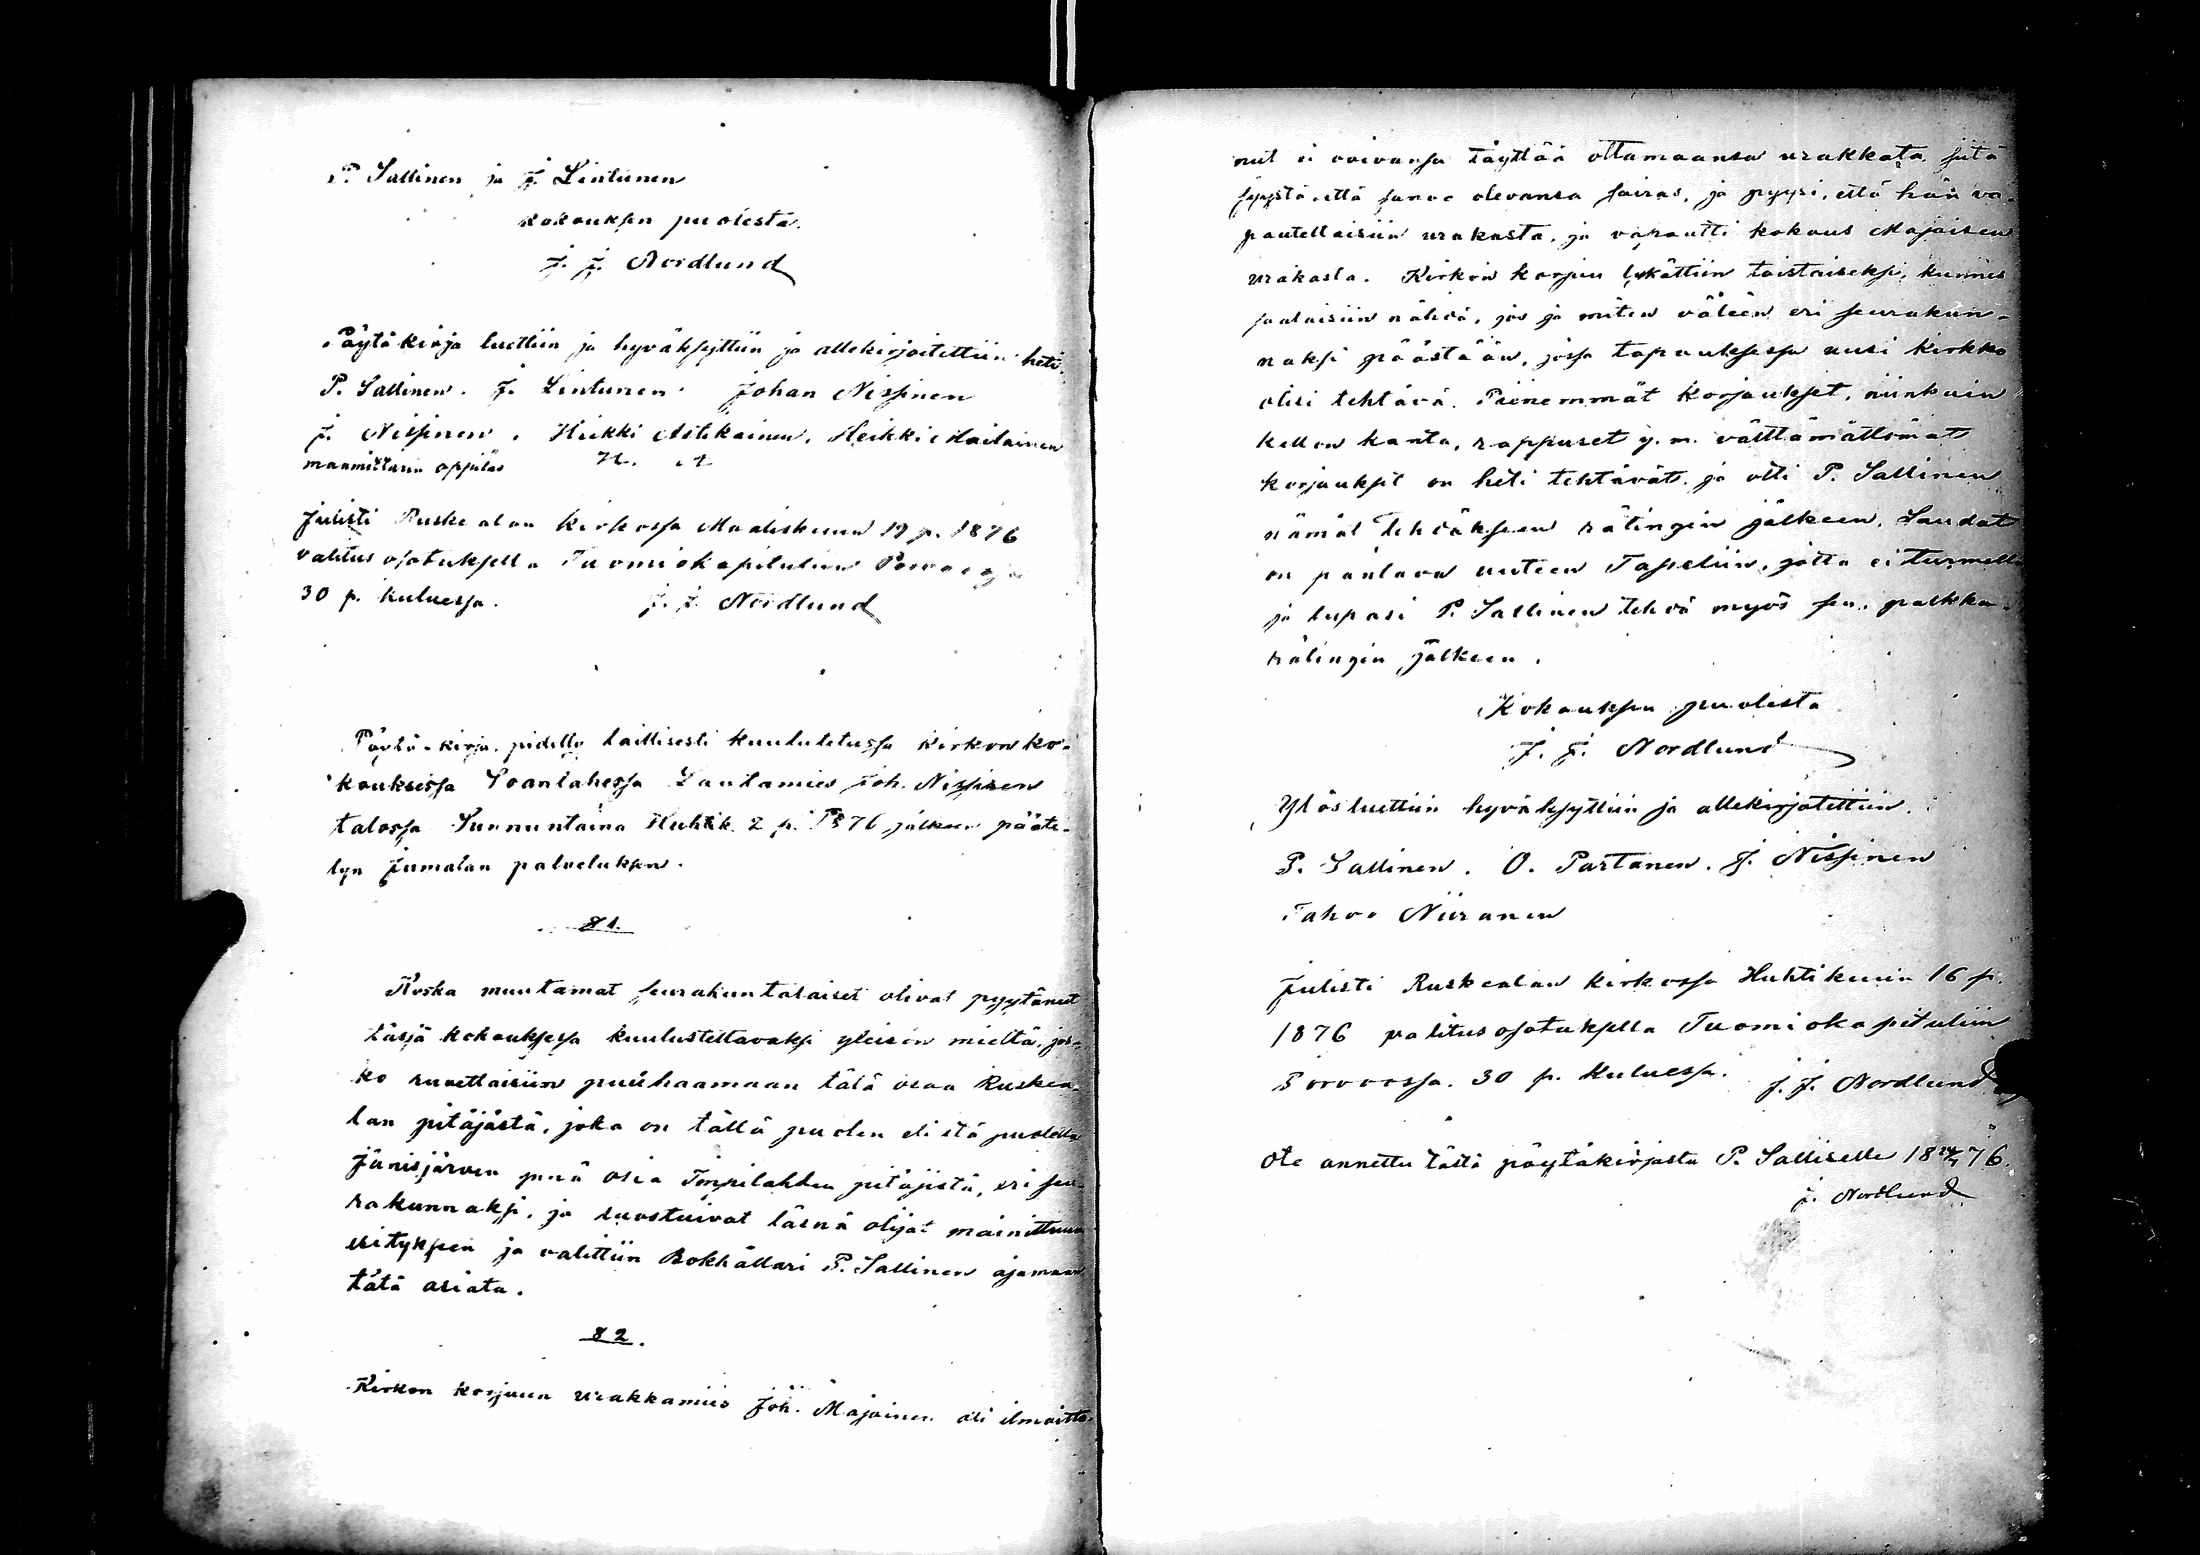 P. Sallinen ja J. Lintunen
kokouksen puolesta.
J. J. Nordlund
Pöytäkirja luettiin ja hyväksyttiin ja allekirjoitettiin heti.
P. Sallinen. J. Lintunen. Johan Nissinen
J. Nissinen. Heikki Astikainen. Heikki Hailainen
maamittarin oppilas
Julisti Ruskealan kirkossa Maaliskuun 19 p. 1876
valitus osotuksella Tuomiokapituliin
30 p. kuluessa. J. J. Nordlund
Pöytä-kirja pidetty laillisesti kuulutetussa kirkonko-
kouksessa Soanlahessa Lautamies Joh. Nissisen
talossa Sunnuntaina Huhtik. 2 p. 1876 jälkeen pääte-
tyn Jumalan palveluksen.
§ 1.
Koska muutamat seurakuntalaiset olivat pyytäneet
tässä kokouksessa kuulusteltavaksi yleisön mieltä, jos-
ko ruvettaisiin puuhaamaan tätä osaa Ruskea-
lan pitäjästä, joka on tällä puolen eli itä puolella
Jänisjärven ynnä osia Impilahden pitäjästä, eri seu-
rakunnaksi, ja suostuivat läsnä olijat mainittuun
esityksen ja valittiin Bokhållari P. Sallinen ajamaan
tätä asiata.
§ 2.
Kirkon korjuun urakkamies Joh. Majoinen oli ilmoitta-
nut ei voivansa täyttää ottamaansa urakkata siitä
syystä, että sanoo olevansa sairas, ja pyysi, että hän va-
pautettaisiin urakasta, ja vapautti kokous Majoisen
urakasta. Kirkon korjuu lykättiin toistaiseksi, kunnes
saataisiin nähdä, jos ja miten väleen eri seurakun-
naksi päästään, jossa tapauksessa uusi kirkko
olisi tehtävä. Pienemmät korjaukset, niinkuin
kellon kanta, rappuset y. m. välttämättömät
korjaukset on heti tehtävät, ja otti P. Sallinen
nämät tehdäksen rätingin jälkeen. Laudat
on pantava uuteen Tapeliin, jotta ei turmellu
ja lupasi P. Sallinen tehdä myös sen, palkka-
rätingin jälkeen.
Kokouksen puolesta
J. J. Nordlund
Ylösluettiin hyväksyttiin ja allekirjotettiin.
P. Sallinen. O. Partanen. J. Nissinen
Tahvo Niiranen
Julisti Ruskealan kirkossa Huhtikuun 16 p.
1876 valitusosotuksella Tuomiokapituliin
Porvoossa. 30 p. kuluessa. J. J. Nordlund
Ote annettu tästä pöytäkirjasta P. Salliselle
J. Nordlund